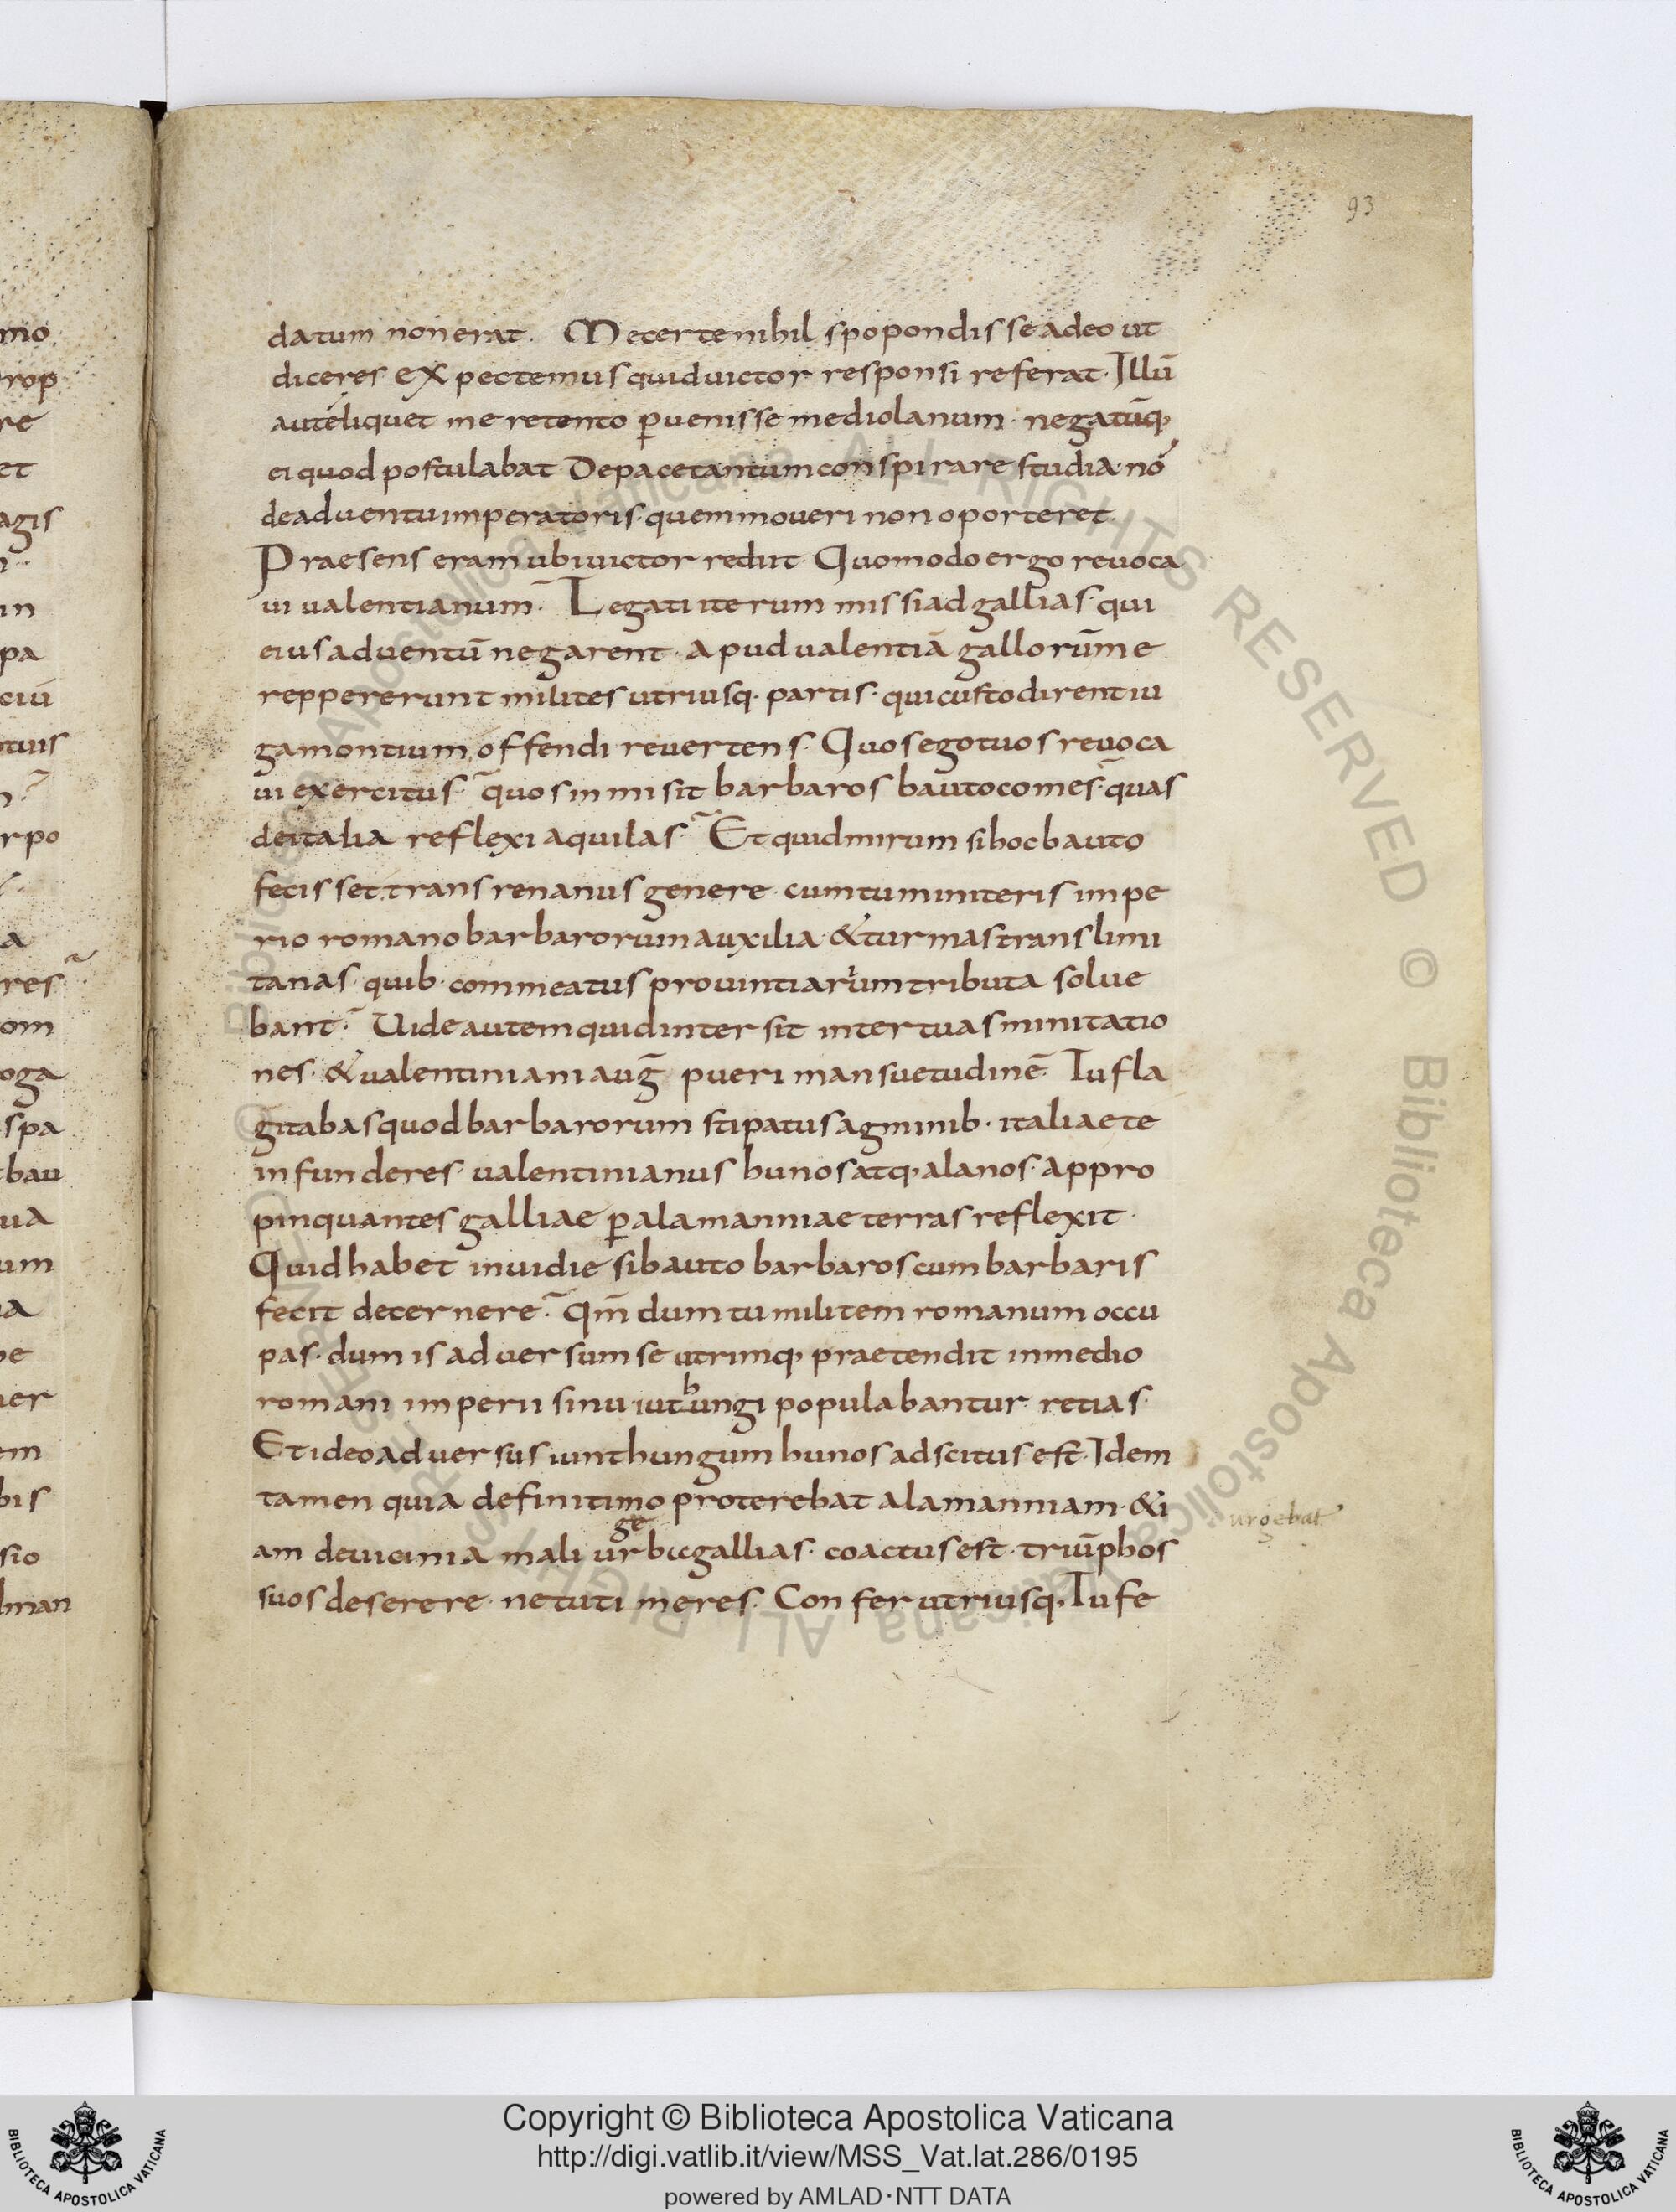 93
datum non erat. Me certe nihil spopondisse adeo ut
diceres expectemus quid uictor responsi referat. Illū
autē liquet me retento ꝑuenisse mediolanum· negatūq;
ei quod postulabat De pace tantum conspirare studia· nō
de aduentu imperatoris· quem moueri non oporteret.
Praesens eram ubi uictor rediit· Quomodo ergo reuoca
ui ualentianum· Legati iterum missi ad gallias· qui
eius aduentū negarent· Apud ualentiā gallorū me
reppererunt milites utriusq· partis· qui custodirent iu
ga montium, offendi reuertens· Quos ego tuos reuoca
ui exercitus· quos inmisit barbaros bauto comes· quas
de italia reflexi aquilas· Et quid mirum si hoc bauto
fecisset· transrenanus genere· cum tu miniteris impe
rio romano barbarorum auxilia· & turmas translimi
tanas· quib· commeatus prouintiarum tributa solue
bant· Uide autem quid intersit inter tuas minitatio
nes· & ualentiniani aug̅ pueri mansuetudinē· Tu fla
gitabas quod barbarorum stipatus agminib· italiae te
infunderes· ualentinianus hunos atq; alanos· appro
pinquantes galliae ꝑ alamanniae terras reflexit·
Quid habet inuidie si bauto barbaros cum barbaris
fecit decernere· Qm̄ dum tu militem romanum occu
pas· dum is aduersum se utrimq; praetendit in medio
romani imperii sinu· iuthungi populabantur retias·
Et ideo aduersus iunthungum hunos adscitus est· Idem
tamen quia definitimo proterebat alamanniam· & i
am de uicinia mali urgebat
ge
h
gallias· coactus est· triūphos
suos deserere· ne tu timeres· Confer utriusq; Tu fe
urgebat
mo
rop
re
et
agis
in
pa
ciū
rpo
a
res
om
oga
spa
bau
ua
um
er
em
bis
sio
lman
Biblioteca Apostolica Vaticana ALL RIGHTS RESERVED ©
Copyright © Biblioteca Apostolica Vaticana
http://digi.vatlib.it/view/MSS_Vat.lat.286/0195
powered by AMLAD·NTT DATA
BIBLIOTECA APOSTOLICA VATICANA
BIBLIOTECA APOSTOLICA VATICANA